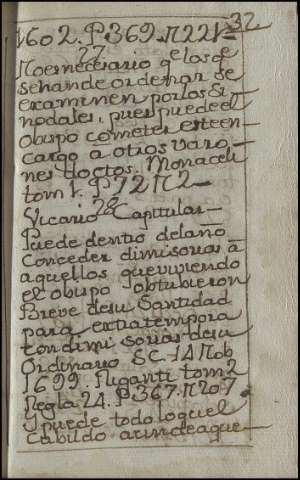 32
1602. P 369. N 22 V
27
No es necesario q los q se
se han de ordenar se
examinen por los Si
nodales, pues puede el
Obispo cometer este en
cargo a otros varo
nes doctos. Monaceli
tom 1. P 72 N 2
28
Vicario Capitular
Puede dentro del año
Conceder dimisorias a
aquellos que viviendo
el obispo obtubieron
Breve de su Santidad
para extratempora
con dimisorias de su
Ordinario SC. 14 Nob
1699. Piganti tom 2
Regla 24. P 367. N 207
Y puede todo lo que el
Cabildo